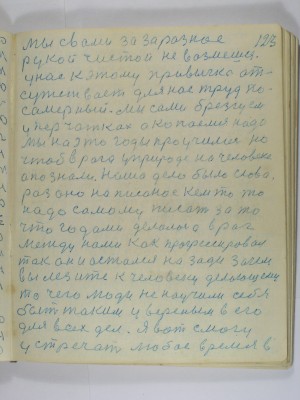 мы свами за заразное 123
рукой чистой не возмешь.
унас к этому привычка от-
сутствает для нас труд по-
самерный. Мы сами брезгуем
у перчатках окопаемся надо
мы на это годы проучились но
чтоб врага уприроде на человеке
опознали. Наша дело было слова.
раз оно написаное кем то то
надо самому писат за то
что годами делалося враг
между нами как прогрессировал
так он и остался на зади зачем
вы лезите к человеку делающему
то чего люди не научили себя
быт таким увереным в его
для всех дел. Я вот смогу
устречат любое время в